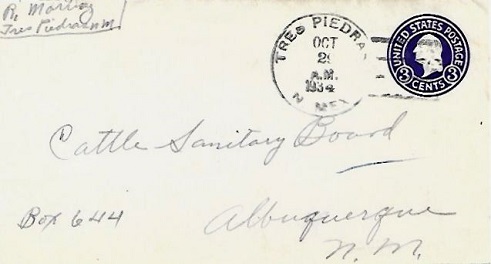 Tres Piedras N.M.
TRES PIEDRAS
OCT
A.M.
1934
N. MEX.
UNITED STATES POSTAGE
3 CENTS 3
Cattle Sanitary Board
Box 644
Albuquerque
N. M.